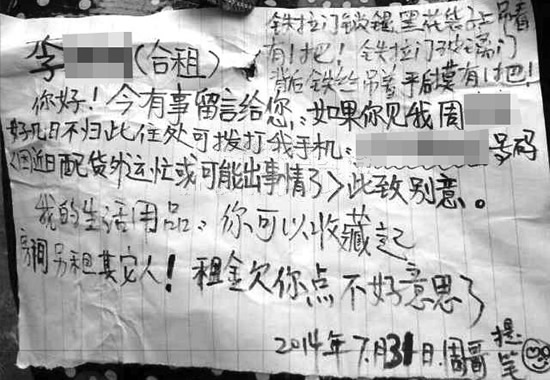 铁拉门锁匙黑花袋子上吊着
有1把！铁拉门
背后铁丝吊着 有1把！
李 (合租)
你好！今有事留言给您：如果你见我周
好几日不归此住处可拨打我手机： 号码
<因近日配货外运忙或可能出事情了>此致别意。
我的生活用品：你可以收藏起
房间另租其它人！租金欠你点不好意思了
2014年7月31日周哥提笔